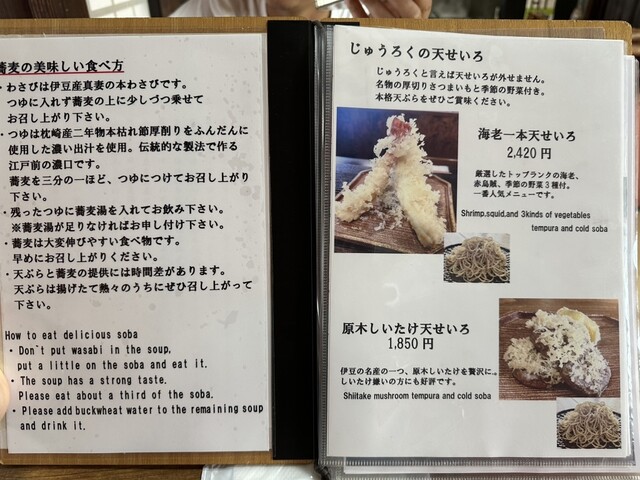 蕎麦の美味しい食べ方
・わさびは伊豆産真妻の本わさびです。
つゆに入れず蕎麦の上に少しづつ乗せて
お召し上がり下さい。
・つゆは枕崎産二年物本枯れ節厚削りをふんだんに
使用した濃い出汁を使用。伝統的な製法で作る
江戸前の濃口です。
蕎麦を三分の一ほど、つゆにつけてお召し上がり下
さい。
・残ったつゆに蕎麦湯を入れてお飲み下さい。
※蕎麦湯が足りなければお申し付け下さい。
・蕎麦は大変伸びやすい食べ物です。
早めにお召し上がりください。
・天ぷらと蕎麦の提供には時間差があります。
天ぷらは揚げたて熱々のうちにぜひ召し上がって
下さい。
How to eat delicious soba
・Don`t put wasabi in the soup,
put a little on the soba and eat it.
・The soup has a strong taste.
Please eat about a third of the soba.
・Please add buckwheat water to the remaining soup
and drink it.
じゅうろくの天せいろ
じゅうろくと言えば天せいろが外せません。
名物の厚切りさつまいもと季節の野菜付き。
本格天ぷらをぜひご賞味ください。
海老一本天せいろ
2,420 円
厳選したトップランクの海老、
赤烏賊、季節の野菜３種付。
一番人気メニューです。
Shrimp,squid,and 3kinds of vegetables
tempura and cold soba
原木しいたけ天せいろ
1,850 円
伊豆の名産の一つ、原木しいたけを贅沢に。
しいたけ嫌いの方にも好評です。
Shiitake mushroom tempura and cold soba